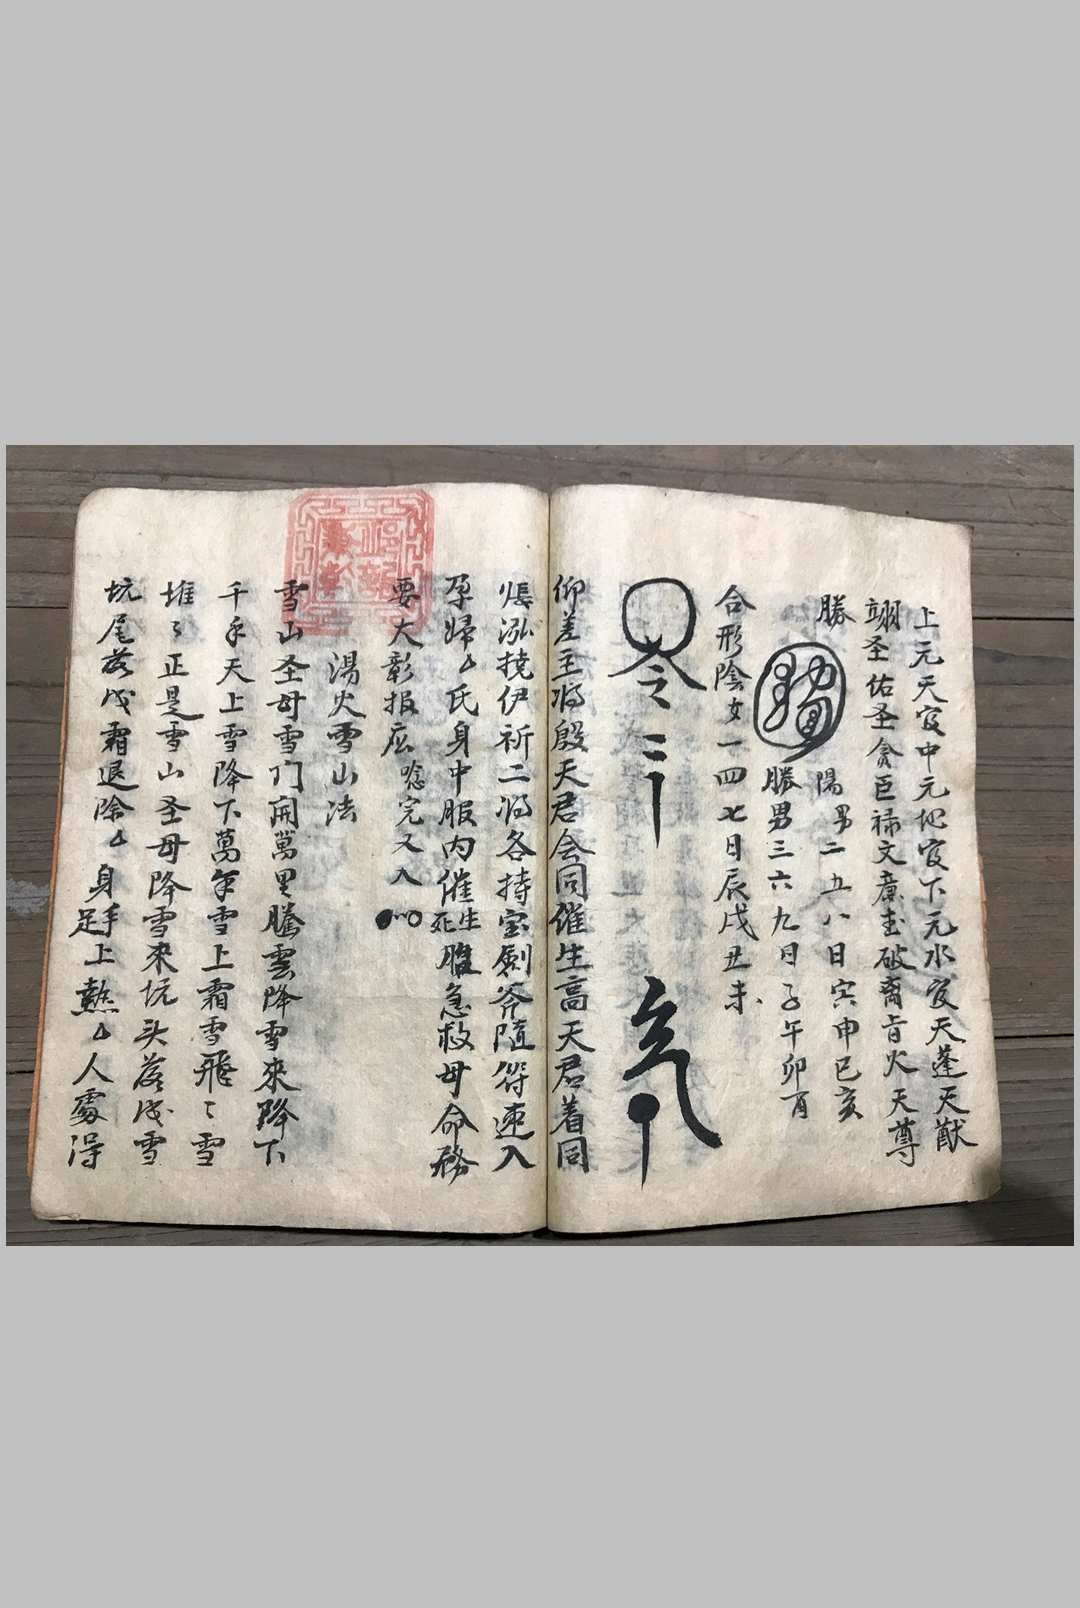 上元天官中元地官下元水官天蓬天猷
翊圣佑圣貪巨禄文廉武破 火天尊
勝
陽男二五八日寅申巳亥
勝男三六九日子午卯酉
合形陰女一四七日辰戌丑未
仰差主将殷天君会同催生高天君着同
伊祈二将各持宝劍斧随符速入
孕婦厶氏身中服内催生死胎急救母命務
要大彰报应 唸完又入
湯火雪山法
雪山圣母雪门開萬里騰雲降雪來降下
千年天上雪降下萬年雪上霜雪飛〻雪
堆〻正是雪山圣母降雪來坑头落成雪
坑尾落成霜退除厶身手足上 厶人處得